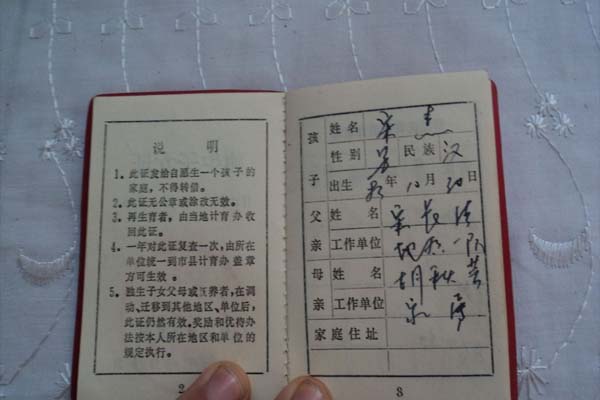 说 明
1. 此证发给自愿生一个孩子的
家庭，不得转借。
2. 此证无公章或涂改无效。
3. 再生育者，由当地计育办收
回此证。
4. 一年对此证复查一次，由所在
单位统一到市县计育办盖章
方可生效。
5. 独生子女父母或抚养者，在调
动、迁移到其他地区、单位后，
此证仍然有效。奖励和优待办
法按本人所在地区和单位的
规定执行。
2
孩 姓名 宋
性别 男 民族 汉
子 出生 年 12月 30日
父 姓 名 宋
亲 工作单位 一队
母 姓 名 胡秋
亲 工作单位
家庭住址
3